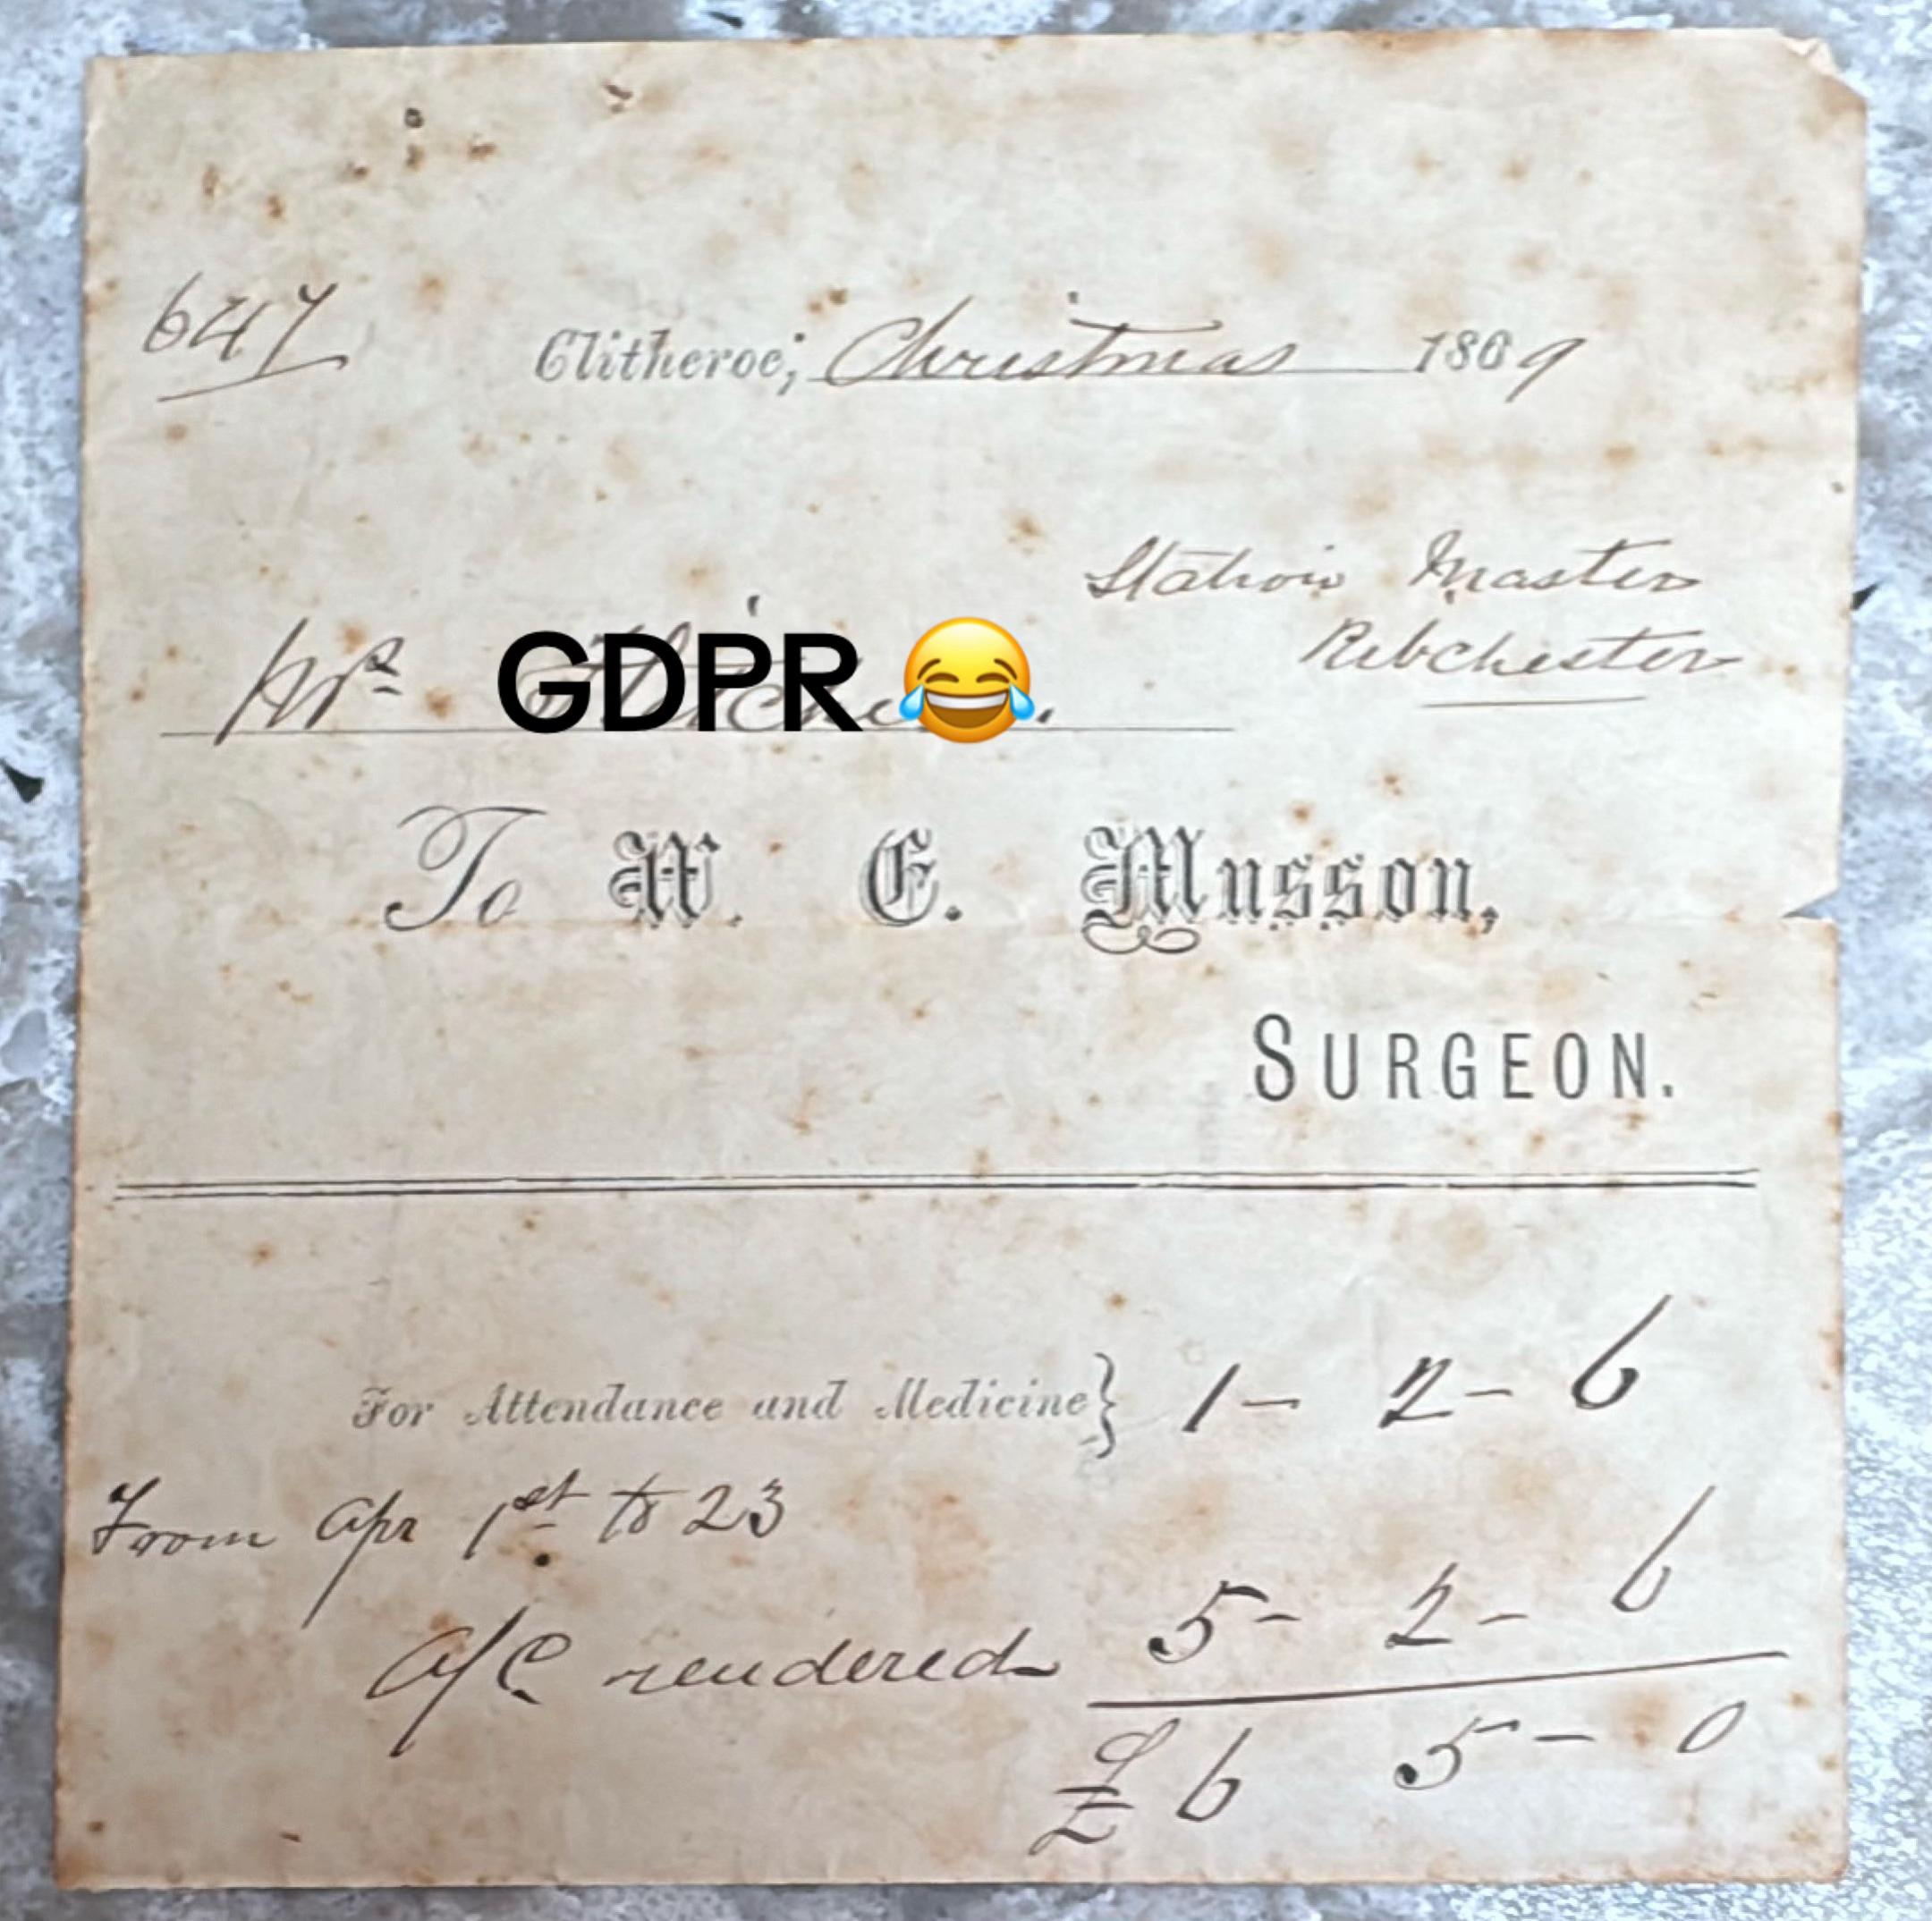 647
Clitheroe, Christmas 1869
Station Master
Ribchester
Mr GDPR 😂
To W. E. Musson,
SURGEON.
For Attendance and Medicine } 1 - 2 - 6
From Apr 1st to 23
A/C rendered 5 - 2 - 6
£ 6 5 - 0